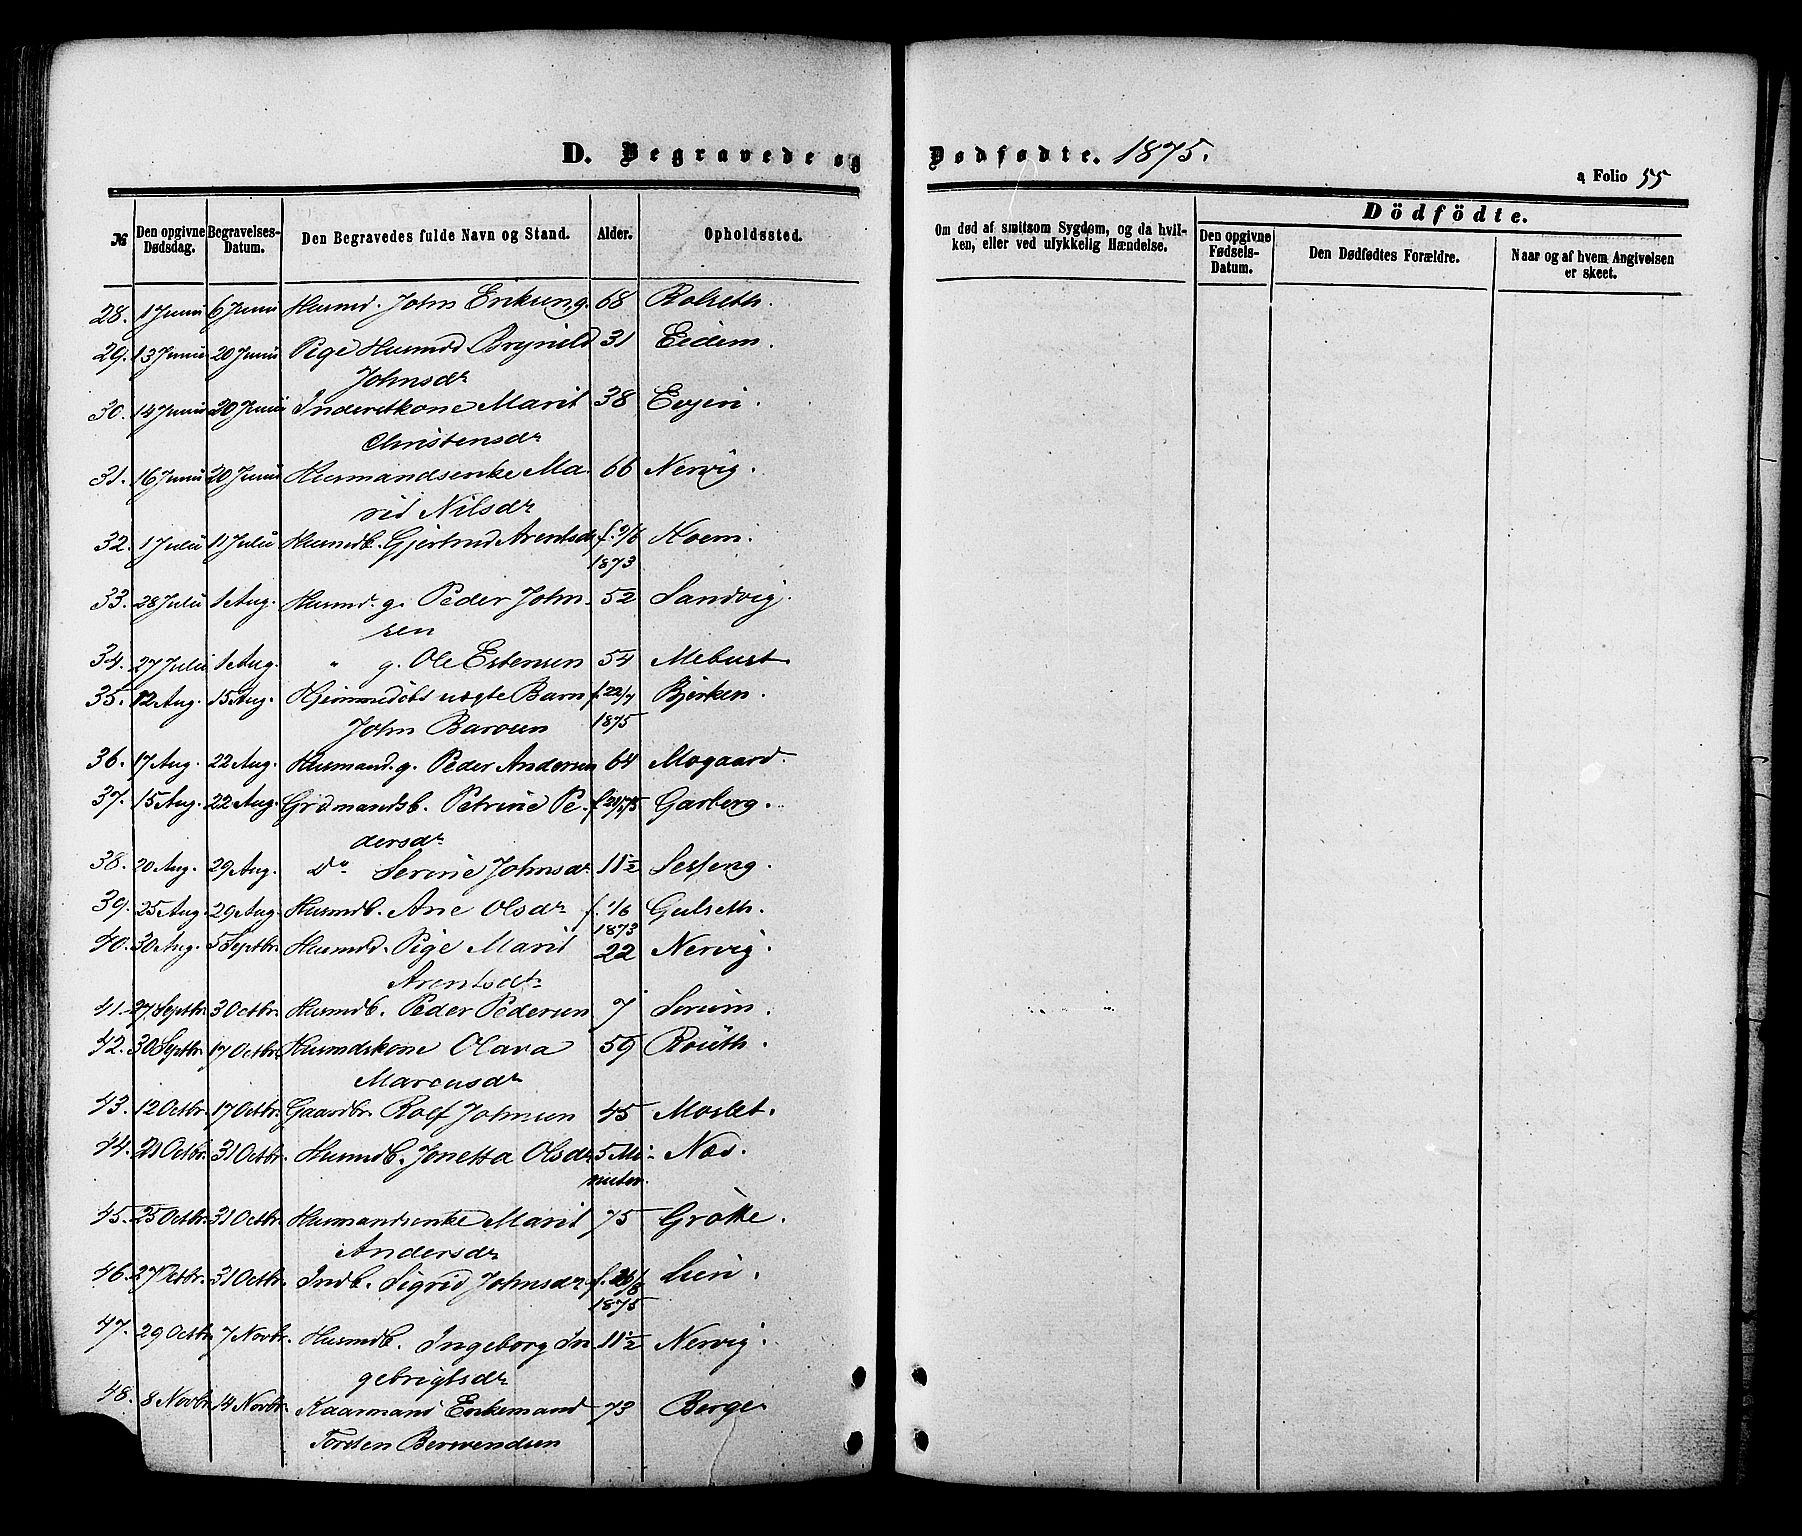 D. Begravede og Dødfødte. 1875.
a Folio 55
№ Den opgivne Dødsdag. Begravelses-Datum. Den Begravedes fulde Navn og Stand. Alder. Opholdssted. Om død af smittsom Sygdom, og da hvilken, eller ved ulykkelig Hændelse.
Dödfödte.
Den opgivne Fødsels-Datum. Den Dødfødtes Forældre. Naar og af hvem Angivelsen er skeet.
28. 1 Juni 6 Juni Husmd. John Eriksen g. 68 Rolseth.
29. 13 Juni 20 Juni Pige Husmd Brynild 31 Eidem.
Johnsdr
30. 14 Juni 20 Juni Inderstkone Marit 38 Evjen.
Christensdr
31. 16 Juni 20 Juni Husmandsenke Ma- 66 Nervig.
rit Nilsdr
32. 1 Juli 11 Juli Husmdb. Gjertrud Arentsdr f. 9/6 Moem.
1873
33. 28 Juli 1 Aug. Husmd. g. Peder John- 52 Sandvig.
sen
34. 27 Juli 1 Aug. " g. Ole Estensen 54 Mebust
35. 12 Aug. 15 Aug. Hjemmedøbt uægte Barn f. 22/7 Bjerken.
John 1875
36. 17 Aug. 22 Aug. Husmand g. Peder Andersen 64 Mogaard.
37. 15 Aug. 22 Aug. Grdmandsb. Petrine Pe- Garberg.
dersdr
38. 20 Aug. 29 Aug. Do Serine Johnsdr 11 1/2 Seseng.
39. 25 Aug. 29 Aug. Husmdb. Ane Olsdr f. 1/6 Gulseth.
1873
40. 30 Aug. 5 Septbr. Husmd. Pige Marit 22 Nervig.
Arentsdr
41. 27 Septbr. 3 Octbr. Husmdb. Peder Pedersen 7
42. 30 Septbr. 17 Octbr. Husmdskone Olava 59
Marcusdr
43. 12 Octbr. 17 Octbr. Gaardbr. Rolf Johnsen 45 Moslet.
44. 21 Octbr. 31 Octbr. Husmdb. Jonetta Olsdr 5 Mi- Næs.
nuter.
45. 25 Octbr. 31 Octbr. Husmandsenke Marit 75 Grötte.
Andersdr
46. 27 Octbr. 31 Octbr. Indb. Sigrid Johnsdr f. 26/8 Lien.
1875
47. 29 Octbr. 7 Novbr. Husmdb. Ingeborg In- 11 1/2 Nervig.
gebrigtsdr
48. 8 Novbr. 14 Novbr. Kaarmand Enkemand 73 Berge
Torsten Berwendsen